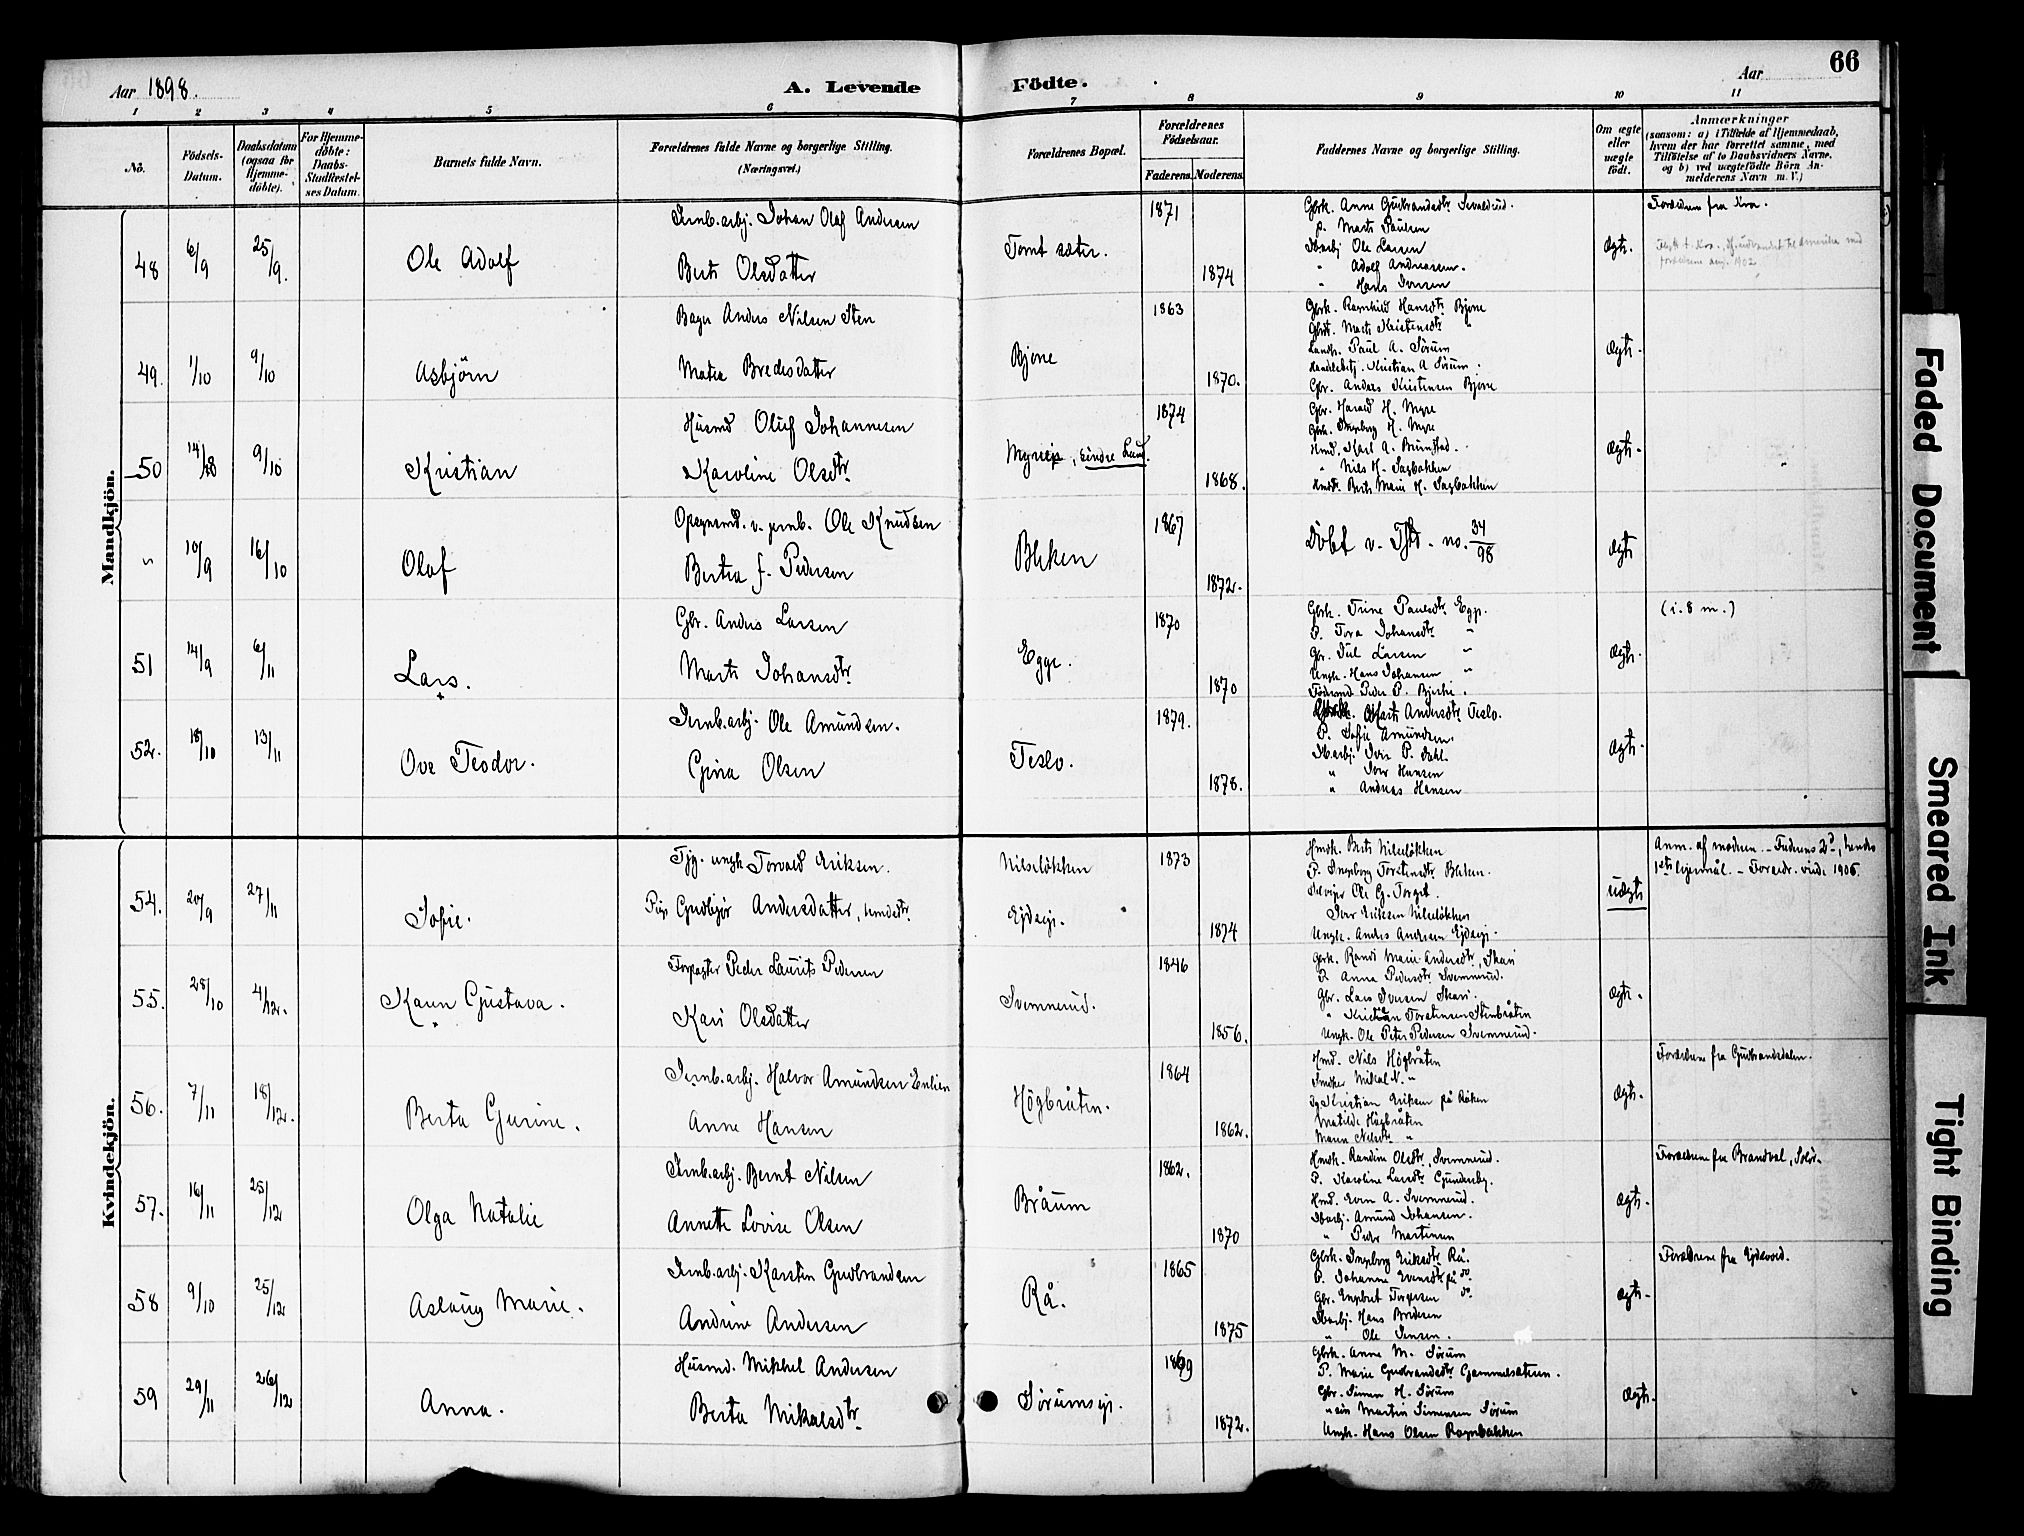 66
Aar 1898.
A. Levende Födte.
Aar
1 2 3 4 5 6 7 8 9 10 11
No.
Födsels-Datum.
Daabsdatum (ogsaa for Hjemme-döbte).
For Hjemme-döbte: Daabs-Stadfestel-ses Datum.
Barnets fulde Navn.
Forældrenes fulde Navne og borgerlige Stilling. (Næringsvei.)
Forældrenes Bopæl.
Forældrenes Födselsaar.
Faderens. Moderens.
Faddernes Navne og borgerlige Stilling.
Om ægte eller uægte födt.
Anmærkninger
(saasom: a) i Tilfælde af Hjemmedaab, hvem der har forrettet samme, med Tilföielse af to Daabsvidners Navne, og b) ved uægtefödte Börn An-melderens Navn m. V.)
Mandkjön.
48 6/9 25/9. Ole Adolf
Jernb.arbj. Johan Olaf Andersen
Berte Olsdatter
Tomt sæter.
1871
1874
Gbrk. Anne Gudbrandsdtr.
P. Marte Paulsen
Jbarbj Ole Larsen
" Adolf Andreassen.
" Hans Iversen
Ægte.
Forældrene fra Kra.
49. 1/10 9/10 Asbjörn
Bager Anders Nilsen Sten
Matea Bredesdatter
Bjone
1863
1870.
Gbrk. Ragnhild Hansdtr. Bjone
Gbrd. Marte Kristensdtr. "
Landh. Paul A. Sörum
Handelsbetj. Kristian A Sörum.
Gbr. Anders Kristensen Bjone
Ægte.
50 14/8 9/10 Kristian
Husmd Oluf Johannesen
Karoline Olsdtr.
Myreeje, Eindre Lund.
1874
1868.
Gbr. Harald H. Myre
Gbrk. Ingeborg H. Myre
Hmd. Karl A. Brunstad.
" Nils H. Sagbakken
Hmdk. Berte Marie H. Sagbakken
Ægte.
" 10/9 16/10 Olaf
Opsynsmd. v. jernb. Ole Knudsen
Bertea f. Pedersen
Bleken
1867
1872.
Döbt v. no. 34/98
Ægte
51 14/9 6/11 Lars.
Gbr. Anders Larsen
Marte Johansdtr.
Egge.
1870
1870
Gbrk. Trine Paulsdtr. Egge.
P. Tora Johansdtr. "
Gbr. Juel Larsen "
Ungk. Hans Johansen "
Föderaad Peder P. Bjerke.
Ægte.
(i. 8 m.)
52. 18/10 13/11 Ove Teodor.
Jernb.arbj. Ole Amundsen.
Gina Olsen
Teslo.
1879.
1878.
Marte Andersdtr. Teslo.
P. Sofie Amundsen.
Jb.arbj. Iver P. Dahl.
" Iver Hansen
" Andreas Hansen
Ægte.
Kvindekjön.
54. 20/9 27/11 Sofie.
Tjg. ungk Torvald Eriksen.
Pige Gudbjör Andersdatter,
Nilselökken
Ejdseje.
1873
1874
Hmdk. Berte Nilselökken
P. Ingeborg Torstensdtr. Bleken.
Selvejer Ole G. Torgit.
Iver Eriksen Nilselökken
Ungk. Anders Andersen Ejdseje.
uægte
Anm. af moderen. – Faderens 2d, hendes
1ste lejermål. – Forældr. viede 1906.
55. 28/10 4/12. Karen Gustava.
Forpagter Peder Laurits Pedersen
Kari Olsdatter
Svennerud.
1846
1856.
Gbrk. Randi Marie Andersdtr., Skari
P. Anna Pedersdtr. Svennerud.
Gbr. Lars Iversen Skari.
" Kristian Torstensen Stenbråten
Ungk. Ole Peter Pedersen Svennerud.
Ægte.
56. 7/11 18/12. Berta Gurine.
Jernb.arbj. Halvor Amundsen Enlien
Anne Hansen
Högbråten.
1864
1862.
Hmd. Nils Högbråten
Snedker Mikal N. "
Kristian Eriksen på Råken
Matilde Högbråten
Maren Nilsdtr. "
Ægte.
Forældrene fra Gudbrandsdalen.
57. 16/11 25/12 Olga Natalie
Jernb.arbj. Bernt Nilsen
Annette Lovise Olsen
Bråum
1862.
1870
Hmdk. Randine Olsdtr., Svennerud.
P. Karoline Larsdtr. Gundersby.
Hmd. Even A. Svennerud.
Jbarbj. Amund Johansen.
" Peder Martinsen
Ægte.
Forældrene fra Brandval, Solör.
58 9/10 25/12 Aslaug Marie.
Jernb.arbj. Karsten Gudbrandsen
Andrine Andersen
Rå.
1865
1875
Gbrk. Ingeborg Eriksdtr. Rå.
P. Johanne Evensdtr. på do.
Gbr. Engebret Torgersen do.
Jbarbj. Hans Bredesen
" Ole Jensen.
Ægte.
Forældrene fra Ejdsvold.
59 29/11 26/12 Anna.
Husmd. Mikkel Andersen
Berta Mikalsdtr.
Sörumseje.
1869
1872.
Gbrk. Anne M. Sörum
P. Marie Gudbrandsdtr. Gammelsæteren.
Gbr. Simen H. Sörum
" sön Martin Simensen Sörum
Ungk. Hans Olsen Rognebakken
Ægte.
Faded Document
Smeared Ink
Tight Binding